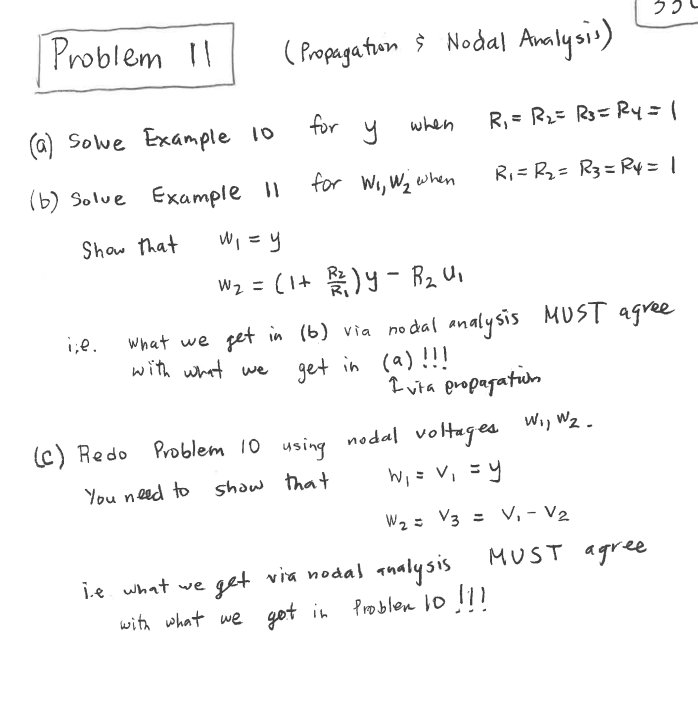 Problem 11 (Propagation & Nodal Analysis)
(a) Solve Example 10 for y when R₁ = R₂ = R₃ = R₄ = 1
(b) Solve Example 11 for W₁, W₂ when R₁ = R₂ = R₃ = R₄ = 1
Show that W₁ = y
W₂ = (1 + R₂/R₁)y - R₂ U₁
i.e. what we get in (b) via nodal analysis MUST agree
with what we get in (a) !!!
↑ via propagation
(c) Redo Problem 10 using nodal voltages W₁, W₂.
You need to show that W₁ = V₁ = y
W₂ = V₃ = V₁ - V₂
i.e what we get via nodal analysis MUST agree
with what we got in Problem 10 !!!